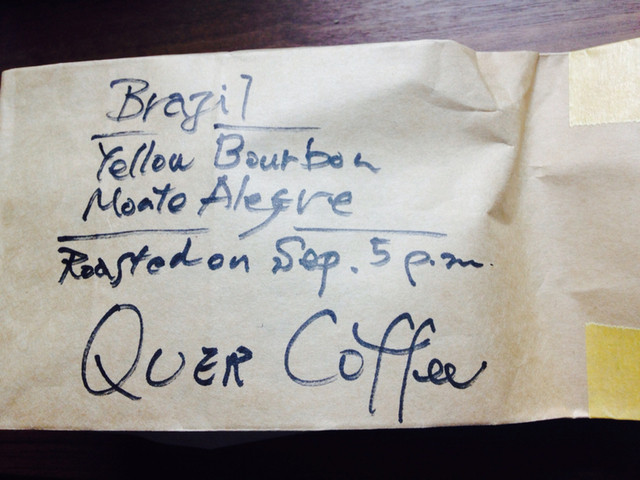 Brazil
Yellow Bourbon
Monte Alegre
Roasted on Sep. 5 p.m.
QUER Coffee